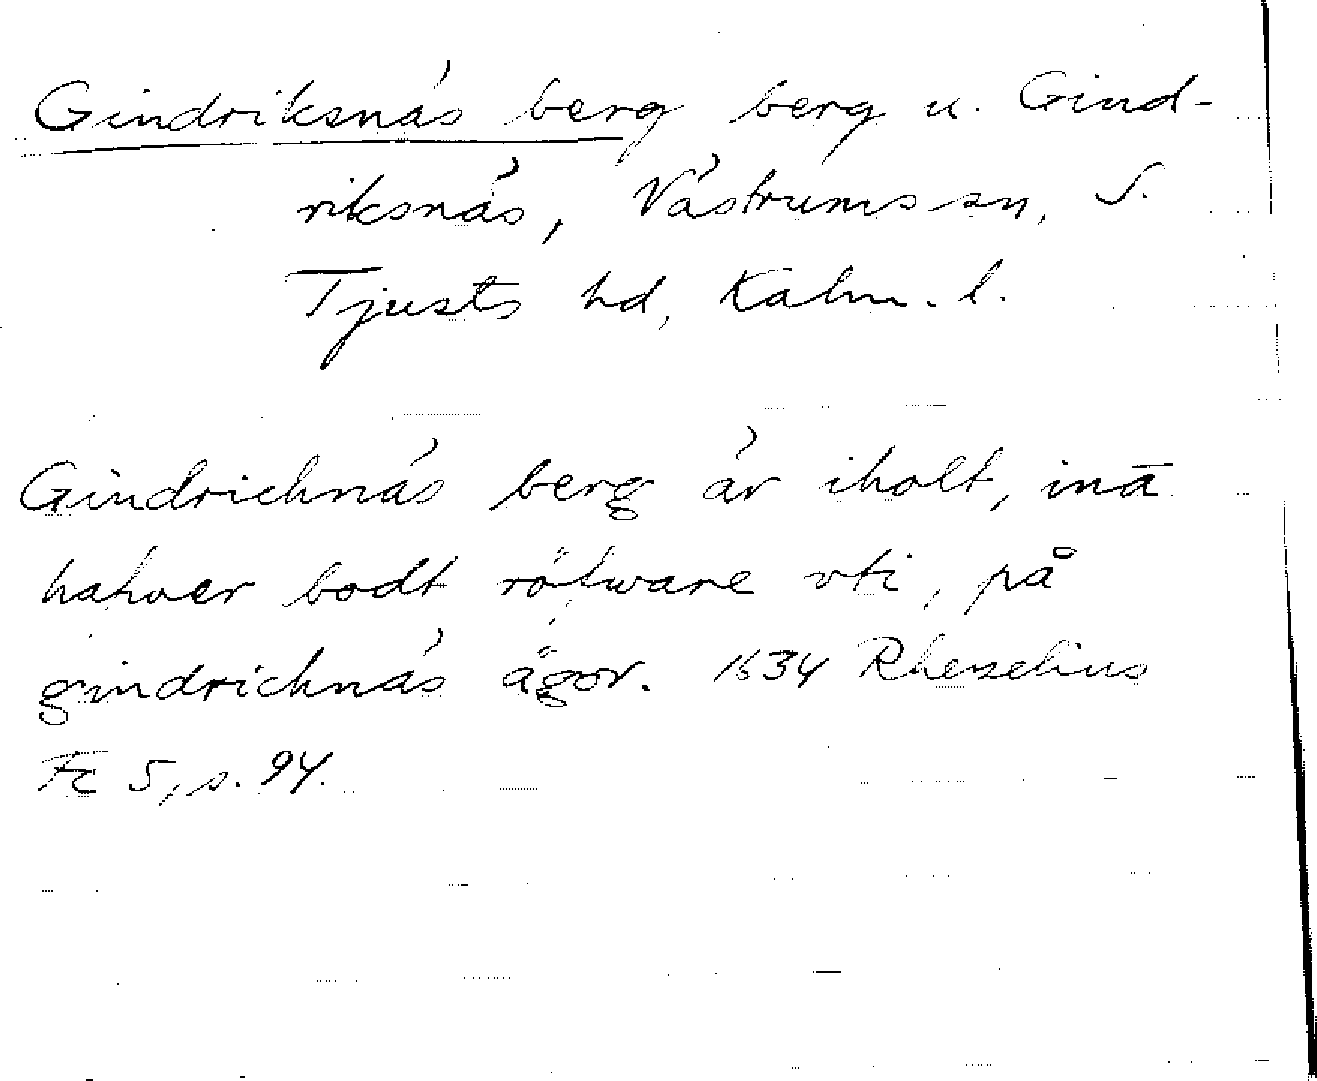 Gindriksnäs berg berg u. Gind-
riksnäs, Västrums sn, S.
Tjusts hd, Kalm. l.
Gindrichnäs berg är iholt, inā
hafver bodt röfware vti, på
gindrichnäs ägor. 1634 Rhezelius
Fc 5, s. 94.